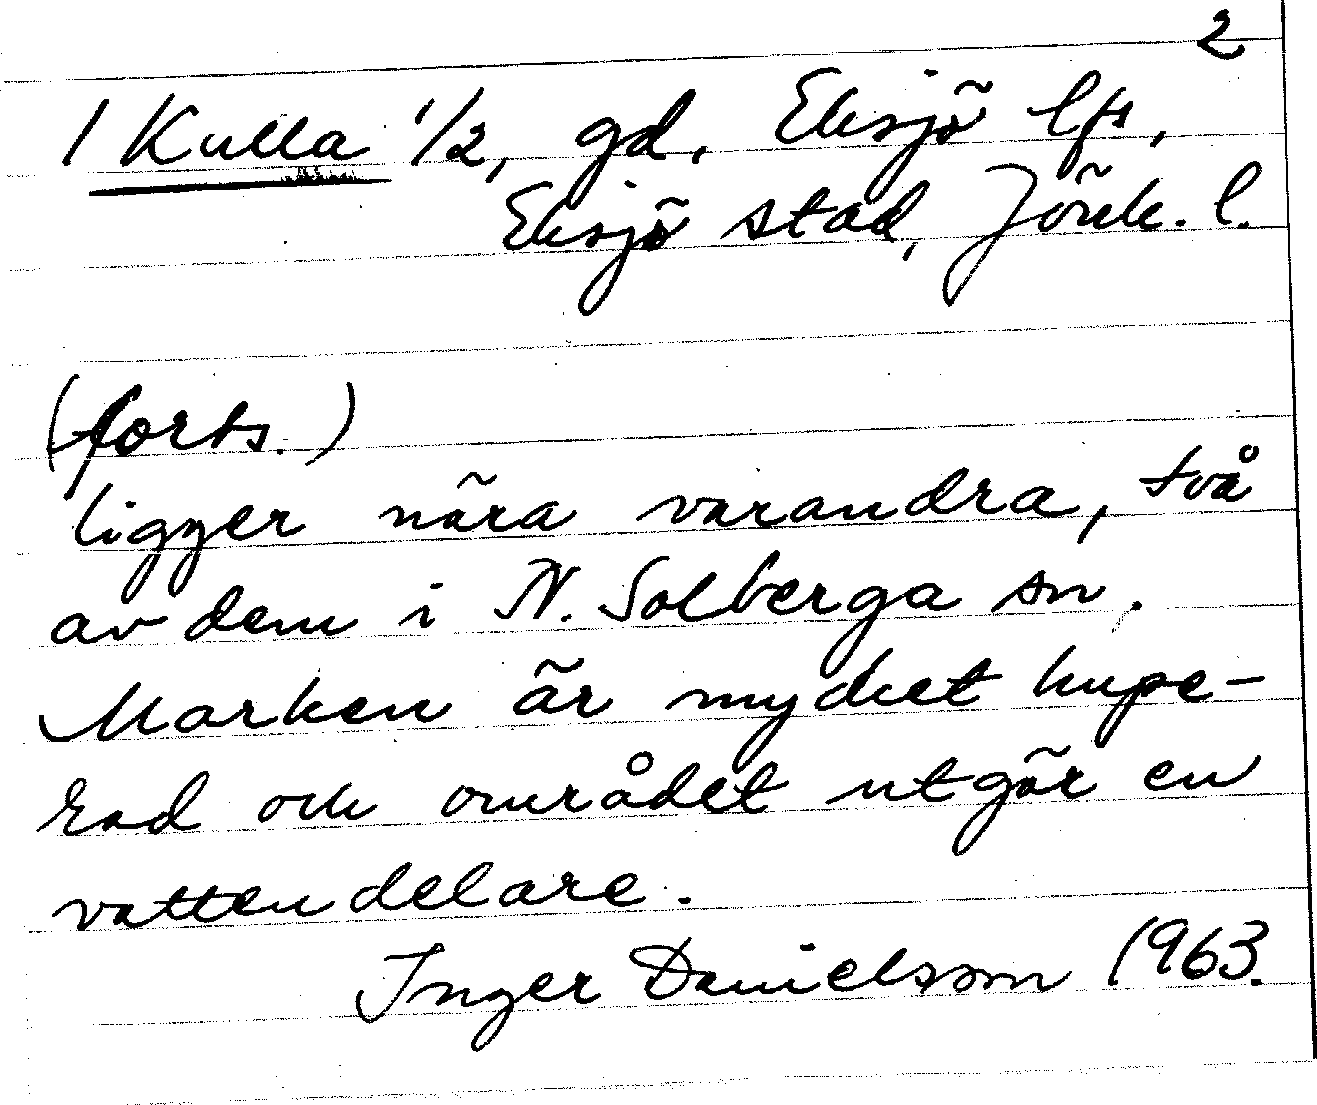 2
/ Kulla 1/2, gd, Eksjö lfs,
Eksjö stad, Jönk. l.
(forts.)
ligger nära varandra, två
av dem i N. Solberga sn.
Marken är mycket kupe-
rad och området utgör en
vattendelare.
Inger Danielsson 1963.